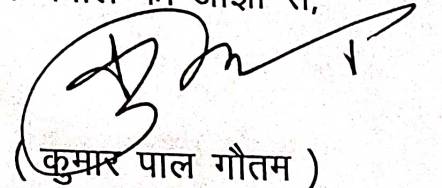 की आज्ञा से,
( कुमार पाल गौतम )